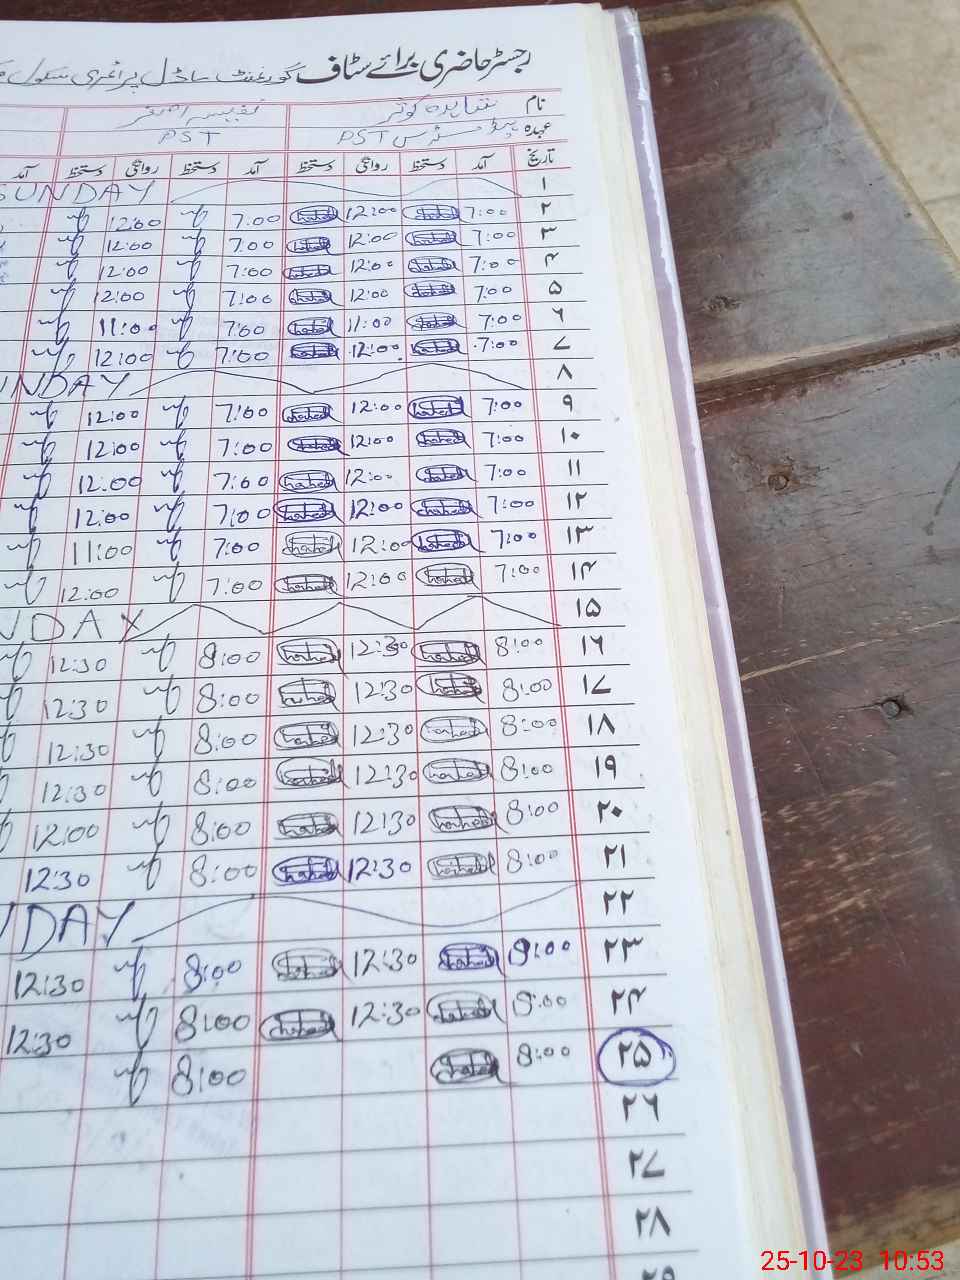 رجسٹر حاضری برائے سٹاف گورنمنٹ ماڈل پرائمری سکول
نام شاہدہ کوثر نفیسہ اصغر
عہدہ ہیڈ مسٹرس PST PST
تاریخ آمد دستخط روانگی دستخط آمد دستخط روانگی دستخط آمد
۱ SUNDAY
۲ 7:00 12:00 7:00 12:00
۳ 7:00 12:00 7:00 12:00
۴ 7:00 12:00 7:00 12:00
۵ 7:00 12:00 7:00 12:00
۶ 7:00 11:00 7:00 11:00
۷ 7:00 12:00 7:00 12:00
۸ UNDAY
۹ 7:00 12:00 7:00 12:00
۱۰ 7:00 12:00 7:00 12:00
۱۱ 7:00 12:00 7:00 12:00
۱۲ 7:00 12:00 7:00 12:00
۱۳ 7:00 12:00 7:00 11:00
۱۴ 7:00 12:00 7:00 12:00
۱۵ NDAY
۱۶ 8:00 12:30 8:00 12:30
۱۷ 8:00 12:30 8:00 12:30
۱۸ 8:00 12:30 8:00 12:30
۱۹ 8:00 12:30 8:00 12:30
۲۰ 8:00 12:30 8:00 12:00
۲۱ 8:00 12:30 8:00 12:30
۲۲ NDAY
۲۳ 8:00 12:30 8:00 12:30
۲۴ 8:00 12:30 8:00 12:30
۲۵ 8:00 8:00
۲۶
۲۷
۲۸
۲۹
25-10-23 10:53